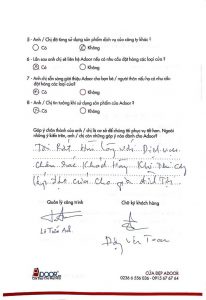 5 - Anh / Chị đã từng sử dụng sản phẩm dịch vụ của công ty khác ?
Có Không
6 - Lần sau anh chị sẽ liên hệ Adoor nếu có nhu cầu đặt hàng các loại cửa ?
Có Không
7 - Anh chị sẵn sàng giới thiệu Adoor cho bạn bè / người thân nếu họ có nhu cầu đặt hàng các loại cửa?
Có Không
8 - Anh Chị tin tưởng khi sử dụng sản phẩm của Adoor ?
Có Không
Góp ý chân thành của anh / chị là cơ sở để chúng tôi phục vụ tốt hơn. Ngoài những ý kiến trên, anh / chị còn những góp ý nào dành cho Adoor?
Tôi Rất Hài lòng với Dịch vụ
Chăm Sóc Khách Hàng
của cho gia đình Tôi.
Quản lý công trình Chữ ký khách hàng
Lê Tuấn
Văn Toan
ADOOR
CỬA ĐẸP ADOOR
0236 6 556 036 - 0913 67 67 64